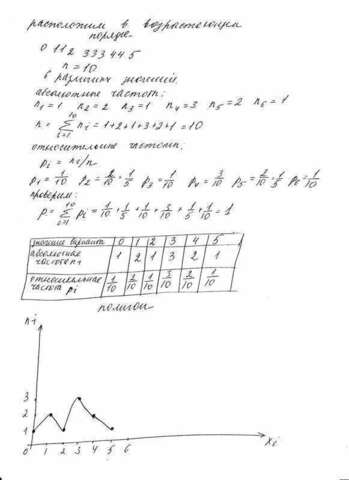 расположим в возрастающем
порядке
0 112 333 44 5
n = 10
6 различных значений.
абсолютные частоты:
n₁=1 n₂=2 n₃=1 n₄=3 n₅=2 n₆=1
n = Σ nᵢ = 1+2+1+3+2+1 = 10
10
i=1
относительные частоты:
pᵢ = nᵢ/n
p₁ = 1/10 p₂ = 2/10 = 1/5 p₃ = 1/10 p₄ = 3/10 p₅ = 2/10 = 1/5 p₆ = 1/10
проверим:
p = Σ pᵢ = 1/10 + 1/5 + 1/10 + 3/10 + 1/5 + 1/10 = 1
10
i=1
значение варианта 0 1 2 3 4 5
абсолютная
частота nᵢ 1 2 1 3 2 1
относительная
частота pᵢ 1/10 2/10 1/10 3/10 2/10 1/10
полигон
nᵢ
3
2
1
0 1 2 3 4 5 6 xᵢ